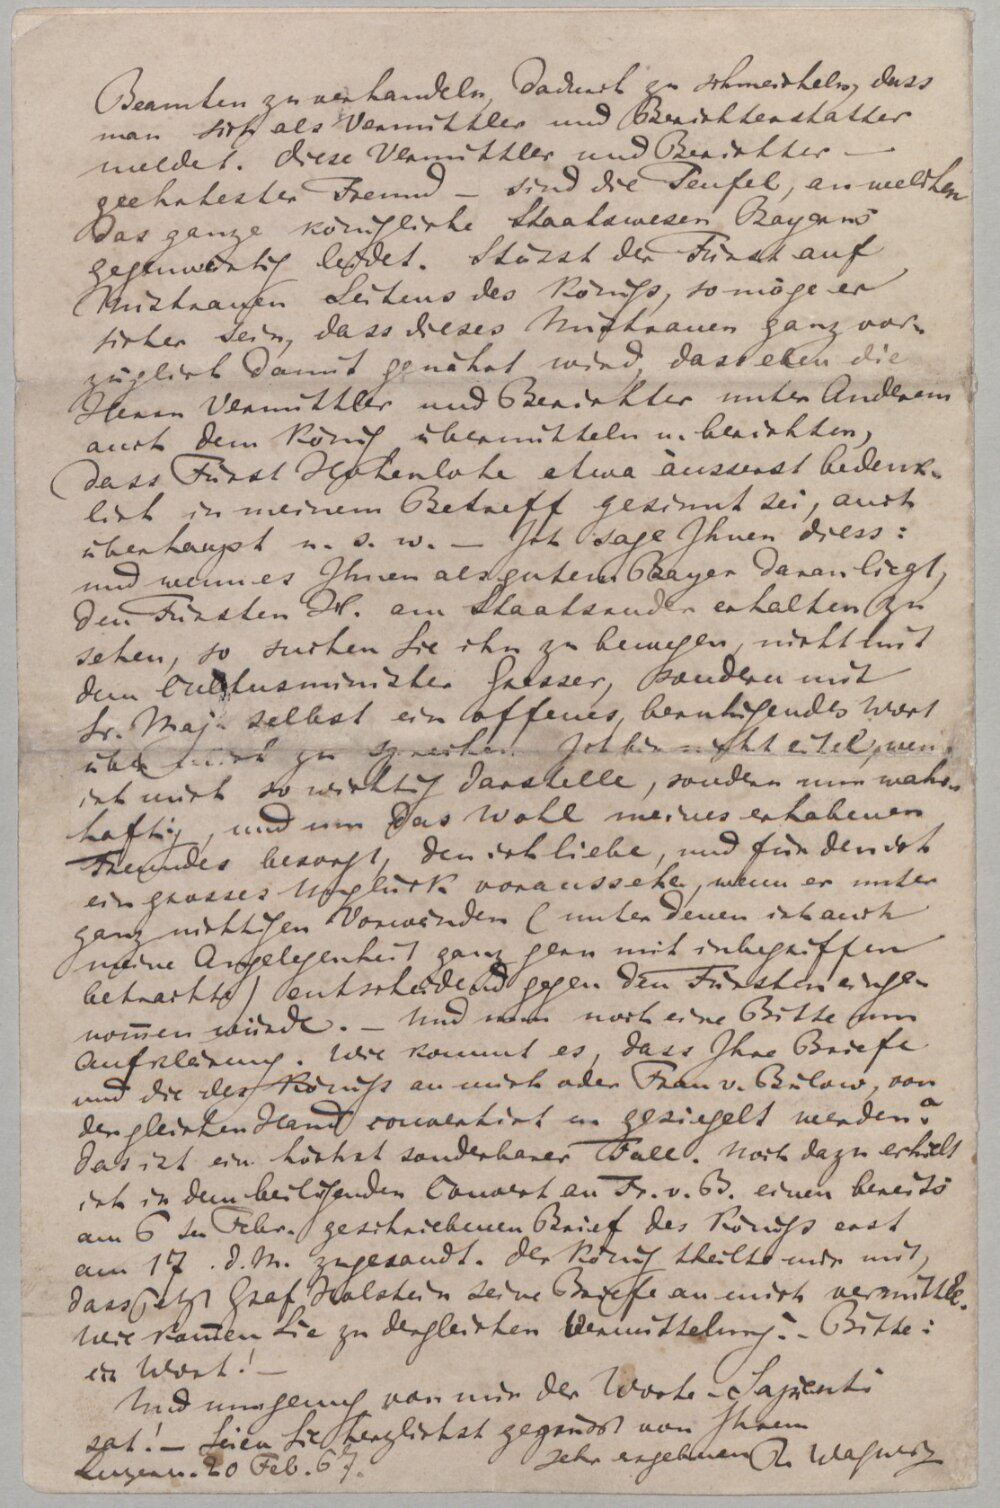 Beamten zu verhandeln, dadurch zu schmeicheln, dass
man sich als Vermittler und Berichterstatter
meldet. Diese Vermittler und Berichter —
geehrtester Freund — sind die Teufel, an welchen
das ganze königliche Staatswesen Bayerns
gegenwärtig leidet. Stösst der Fürst auf
Mistrauen Seitens des Königs, so möge er
sicher sein, dass dieses Mistrauen ganz vor-
züglich damit genährt wird, dass eben die
Herrn Vermittler und Berichter unter Anderem
auch dem König übermitteln u. berichten,
dass Fürst Hohenlohe etwa äusserst bedenk-
lich in meinem Betreff gesinnt sei, auch
überhaupt u. s. w. — Ich sage Ihnen diess:
und wenn es Ihnen als gutem Bayer daran liegt,
den Fürsten H. am Staatsruder erhalten zu
sehen, so suchen Sie ihn zu bewegen, nicht mit
dem Cultusminister Gresser, sondern mit
Sr. Maj. selbst ein offenes, beruhigendes Wort
über mich zu sprechen. Ich bin nicht eitel, wenn
ich mich so wichtig darstelle, sondern nur wahr-
haftig, und um das Wohl meines erhabenen
Freundes besorgt, den ich liebe, und für den ich
ein grosses Unglück voraussehe, wenn er unter
ganz nichtigen Vorwänden (unter denen ich auch
meine Angelegenheit ganz gern mit inbegriffen
betrachte) entscheidend gegen den Fürsten einge-
nom̄en würde. — Und nun noch eine Bitte um
Aufklärung. Wie kommt es, dass Ihre Briefe
und die des Königs an mich oder Frau v. Bülow, von
der gleichen Hand couvertirt u. gesiegelt werden?
Das ist ein höchst sonderbarer Fall. Noch dazu erhielt
ich in dem beiliegenden Couvert an Fr. v. B. einen bereits
am 6ten Febr. geschriebenen Brief des Königs erst
am 17. d. M. zugesandt. Der König theilte mir mit,
dass jetzt Graf Holstein seine Briefe an mich vermittle.
Wie kom̄en Sie zu dergleichen Vermittelung? — Bitte:
ein Wort! —
Und nun genug von mir der Worte — Sapienti
sat! — Seien Sie herzlichst gegrüsst von Ihrem
sehr ergebenen R Wagner
Luzern. 20 Feb. 67.